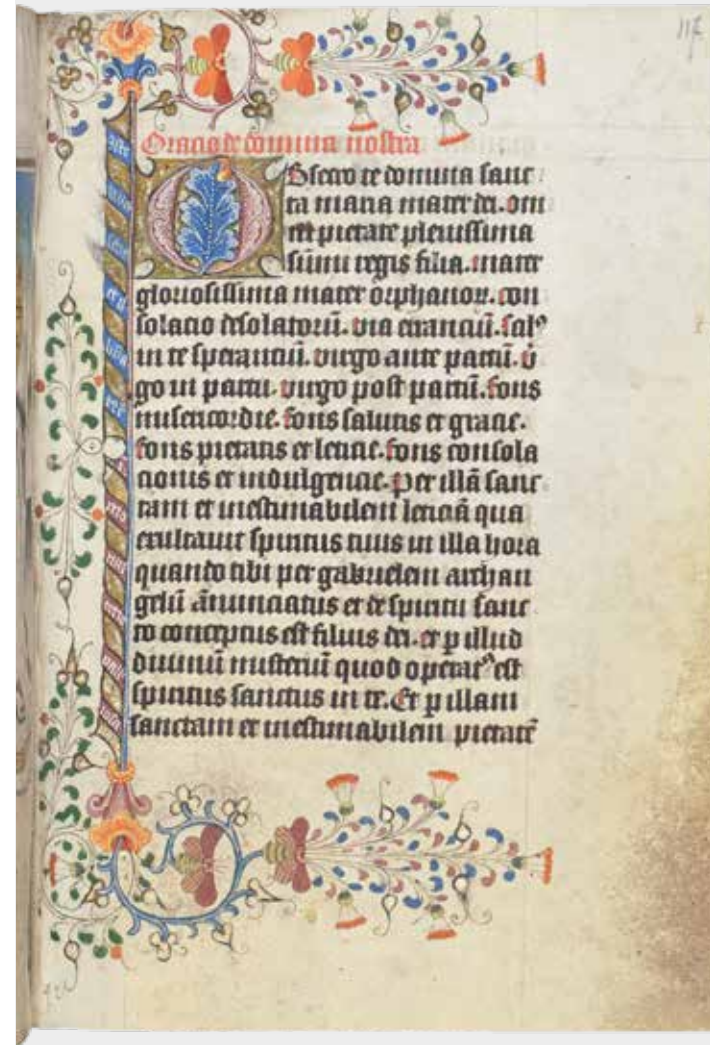 117
Oracio de domina nostra
Obsecro te domina sanc
ta maria mater dei. om
pietate plenissima
sūmi regis filia. mater
gloriosissima mater orphanoꝝ. con
solacio desolatoriū. via eranciū. salꝰ
in te sperantiū. virgo ante partū. v̄
go in partu. virgo post partū. fons
misericordie. fons salutis et gracie.
fons pietatis et leticie. fons consola
cionis et indulgencie. Per illā sanc
tam et inestimabilem leticiā qua
exultauit spiritus tuus in illa hora
quando tibi per gabrielem archan
gelū ānunciatus et de spiritu sanc
to conceptus est filius dei. et ꝑ illud
diuinū misteriū quod operatꝰ est
spiritus sanctus in te. Et ꝑ illam
sanctam et inestimabilem pietatē